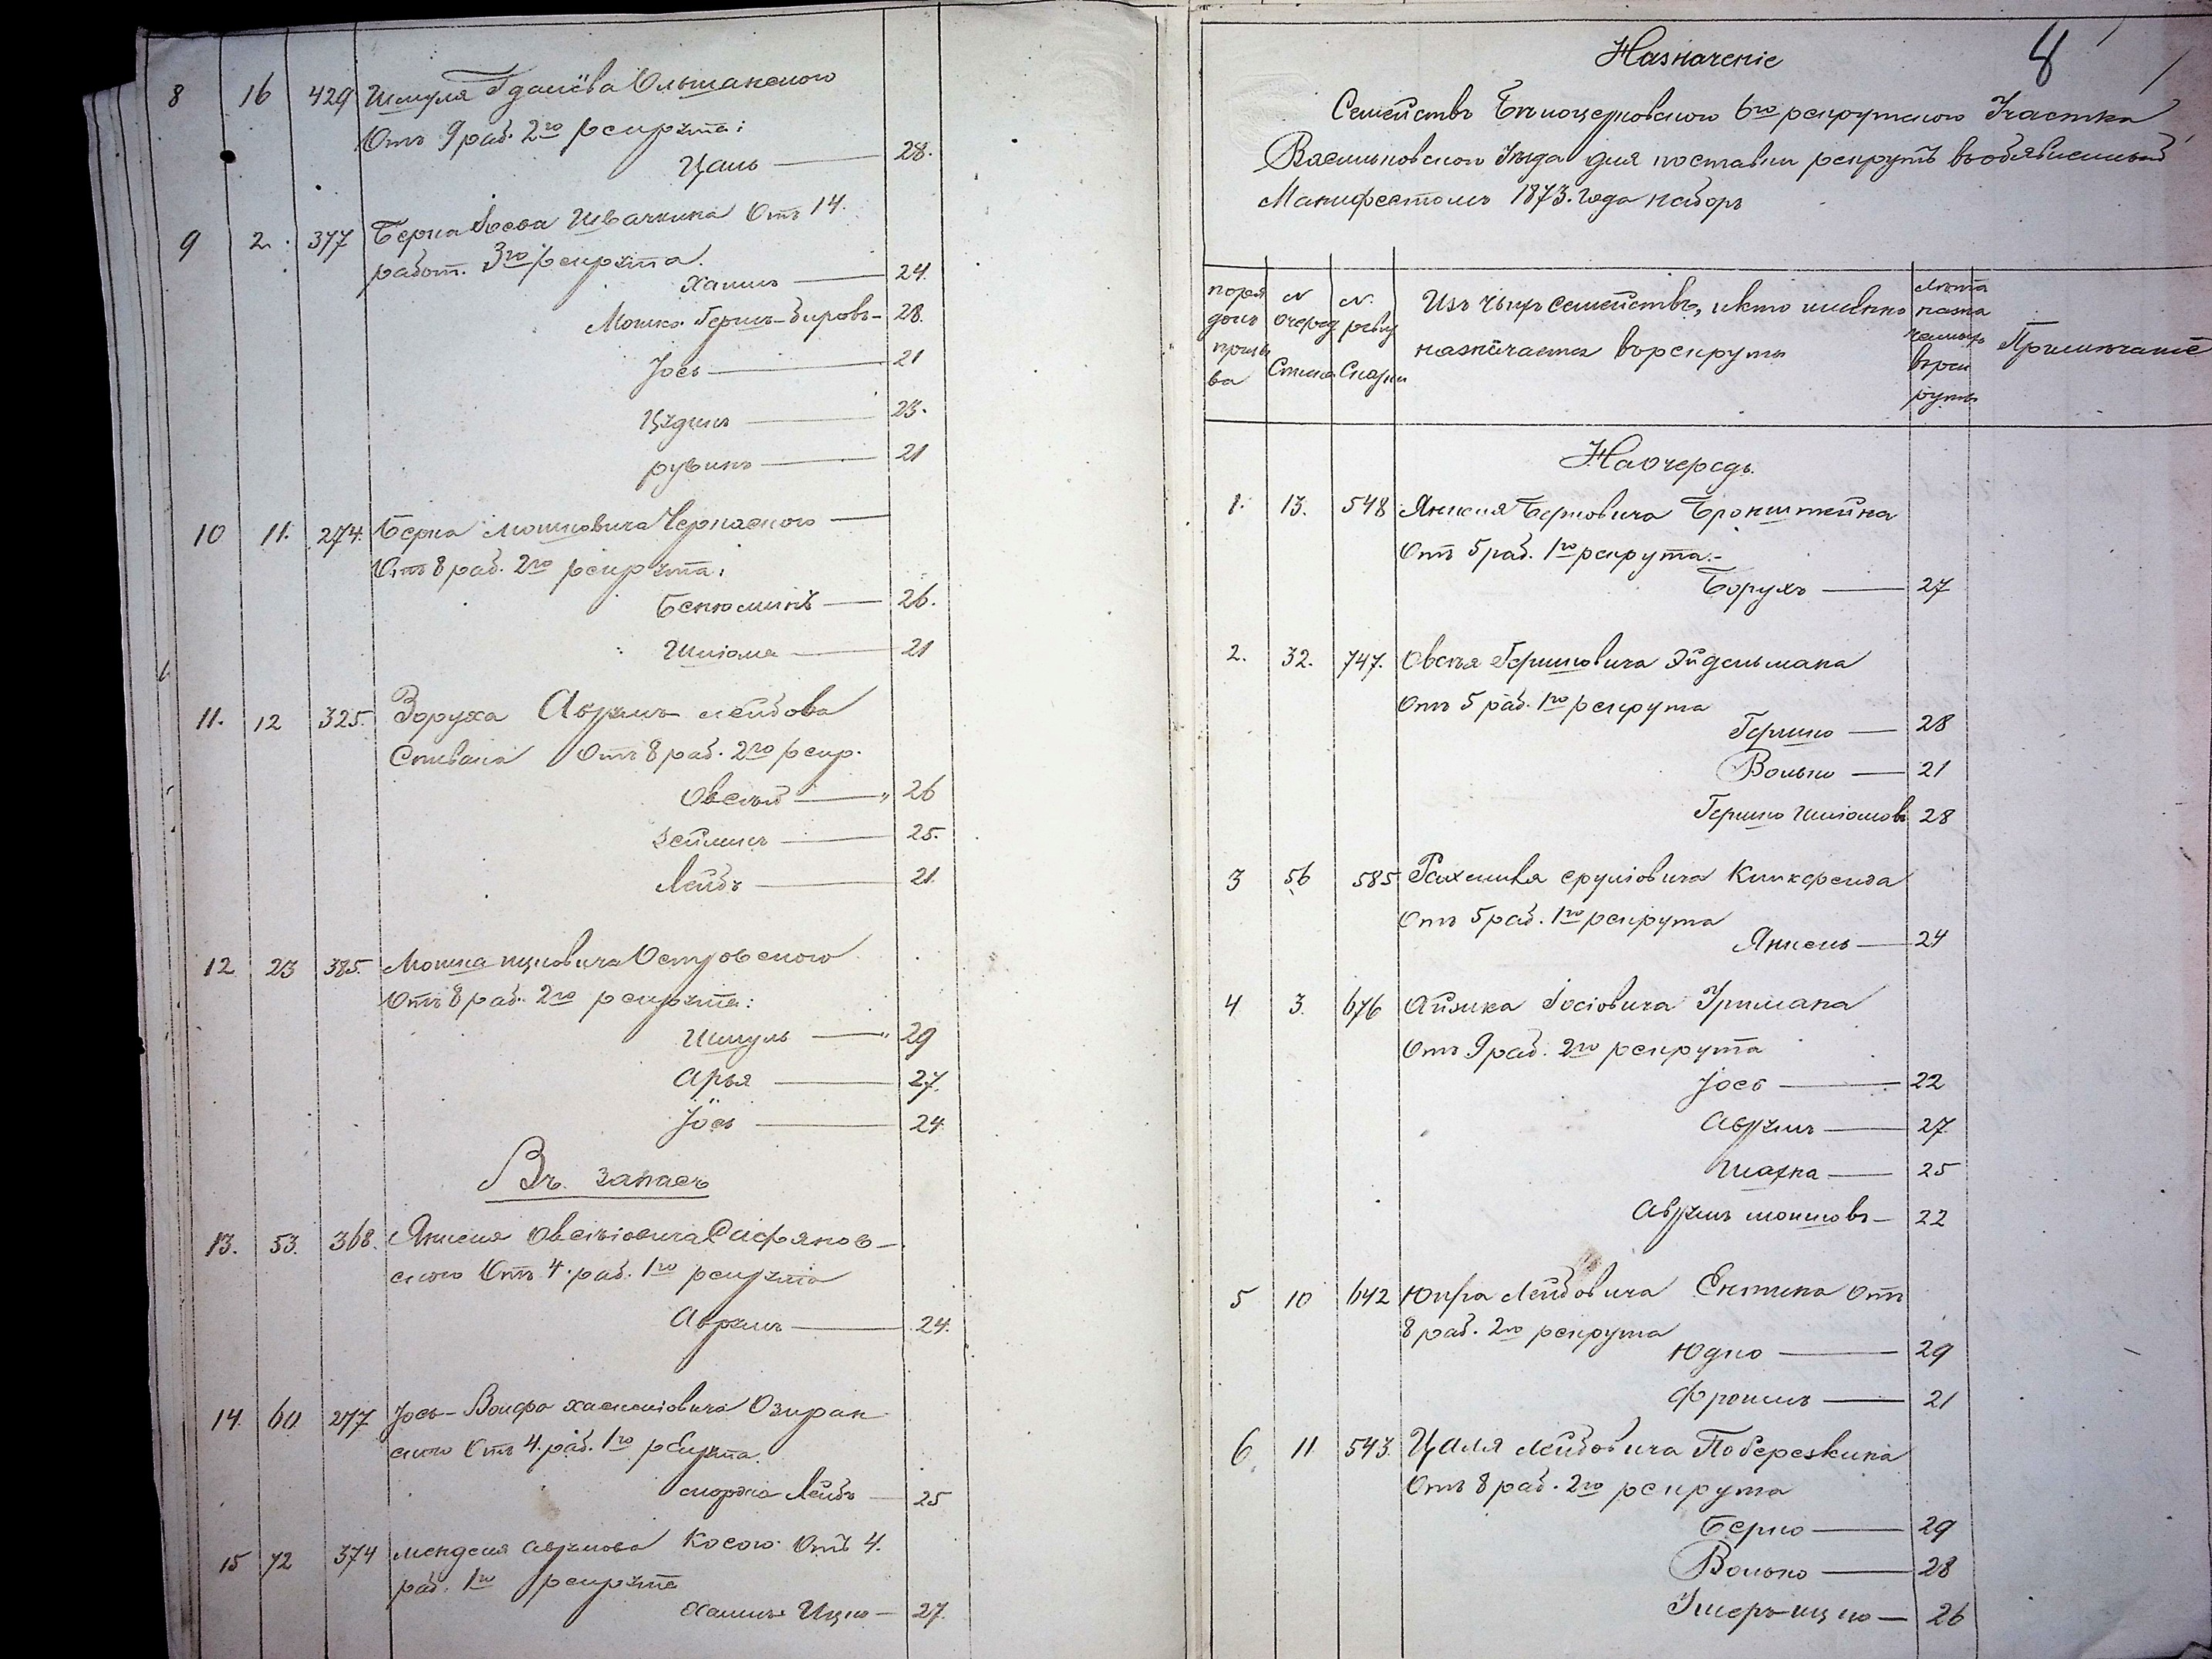 8 16 429 Шмуля Гдалiева Ольшанского
Отъ 9 раб. 2го рекрута:
Цаль — 28.
9 2. 377 Берка Іосева Шварчкина Отъ 14.
работ. 3го рекрута.
Хаимъ — 24.
Мошко Герш-Бировъ — 28.
Іось — 21
Цудикъ — 23.
рувинъ — 21
10 11. 274. Берка Мошковича Черкаского —
Отъ 8 раб. 2го рекрута:
Бенюминъ — 26.
Шліома — 21
11. 12 325. Боруха Аврумъ Лейбова
Спивака Отъ 8 раб. 2го рекр.
Овсѣй — 26
Зейликъ — 25.
Лейбъ — 21.
12 23 385. Мошка ицковича Островского
Отъ 8 раб. 2го рекрута:
Шмуль — 29
Арья — 27.
Іось — 24
Въ запасъ
13. 53. 368. Янкеля Овсѣіовича Сафянов-
ского Отъ 4. раб. 1го рекрута
Аврумъ — 24.
14. 60 277 Іось-Вольфа хаскеліовича Озиран
ского Отъ 4. раб. 1го рекрута.
смордко Лейбъ — 25
15 72 374 менделя Аврумова Косого. Отъ 4.
раб. 1го рекрута
Хаимъ Ицко — 27.
8
Назначеніе
Семействъ Бѣлоцерковского 6го рекрутского Участка
Васильковского Уѣзда для поставки рекрутъ въ объявленный
Манифестомъ 1873. года наборъ
поря
докъ
призы
ва
N
очеред
Списка
N.
рeвиз
Сказки
Изъ чьихъ семействъ, и кто именно
назначается въ рекруты
лѣта
назна
ченныхъ
въ рек
руты
Примѣчаніе
На очередь.
1. 13. 548 Янкеля Берковича Бронштейна
Отъ 5 раб. 1го рекрута. -
Борухъ — 27
2. 32. 747. Овсѣя Гершковича Эйдельмана
Отъ 5 раб. 1го рекрута
Гершко — 28
Волько — 21
Гершко Шліомовъ 28
3 56 585 Рахмиля срулiовича Кипкофенда
Отъ 5 раб. 1го рекрута
Янкель — 24
4 3. 676 Айзика Іосіовича Урмана
Отъ 9 раб. 2го рекрута
Іось — 22
Аврумъ — 27
Шахна — 25
Аврумъ мошковъ — 22
5 10 642 Юкра Лейбовича Ентина Отъ
8 раб. 2го рекрута
Юдко — 29
Фроимъ — 21
6. 11 543. Цаля Лейбовича Поберезкина
Отъ 8 раб. 2го рекрута
Берко — 29
Волько — 28
Умеръ-ицко — 26